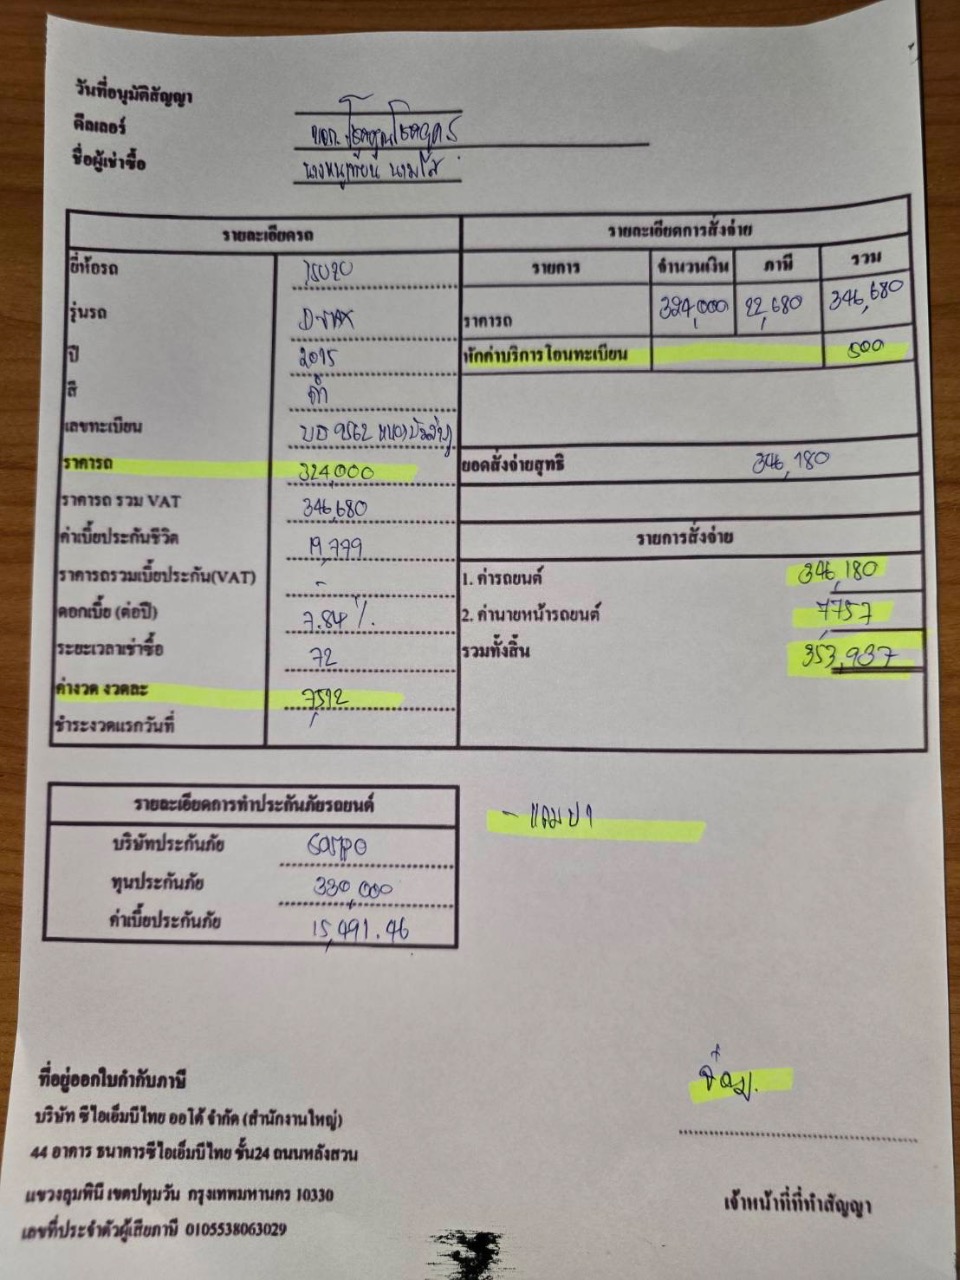 วันที่อนุมัติสัญญา
ดีลเลอร์ หจก.
ชื่อผู้เช่าซื้อ
รายละเอียดรถ
ยี่ห้อรถ ISUZU
รุ่นรถ D-MAX
ปี 2015
สี ดำ
เลขทะเบียน 9562 หนองบัวลำภู
ราคารถ 324,000
ราคารถ รวม VAT 346,680
ค่าเบี้ยประกันชีวิต 19,779
ราคารถรวมเบี้ยประกัน(VAT) -
ดอกเบี้ย (ต่อปี) 7.84 %
ระยะเวลาเช่าซื้อ 72
ค่างวด งวดละ 7,512
ชำระงวดแรกวันที่
รายละเอียดการสั่งจ่าย
รายการ จำนวนเงิน ภาษี รวม
ราคารถ 324,000 22,680 346,680
หักค่าบริการโอนทะเบียน 500
ยอดสั่งจ่ายสุทธิ 346,180
รายการสั่งจ่าย
1. ค่ารถยนต์ 346,180
2. ค่านายหน้ารถยนต์ 7,757
รวมทั้งสิ้น 353,937
รายละเอียดการทำประกันภัยรถยนต์
บริษัทประกันภัย
ทุนประกันภัย 330,000
ค่าเบี้ยประกันภัย 15,491.46
ที่อยู่ออกใบกำกับภาษี
บริษัท ซีไอเอ็มบีไทย ออโต้ จำกัด (สำนักงานใหญ่)
44 อาคาร ธนาคารซีไอเอ็มบีไทย ชั้น24 ถนนหลังสวน
แขวงลุมพินี เขตปทุมวัน กรุงเทพมหานคร 10330
เลขที่ประจำตัวผู้เสียภาษี 0105538063029
เจ้าหน้าที่ที่ทำสัญญา